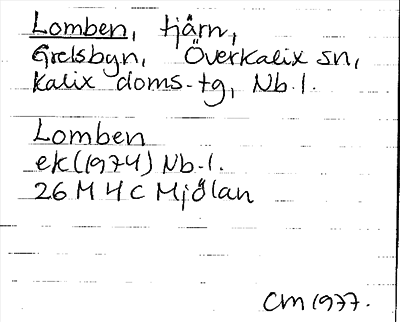 Lomben, tjärn,
Grelsbyn, Överkalix sn,
Kalix doms.tg, Nb.l.
Lomben
ek(1974) Nb.l.
26 M 4 C Mjölan
CM 1977.